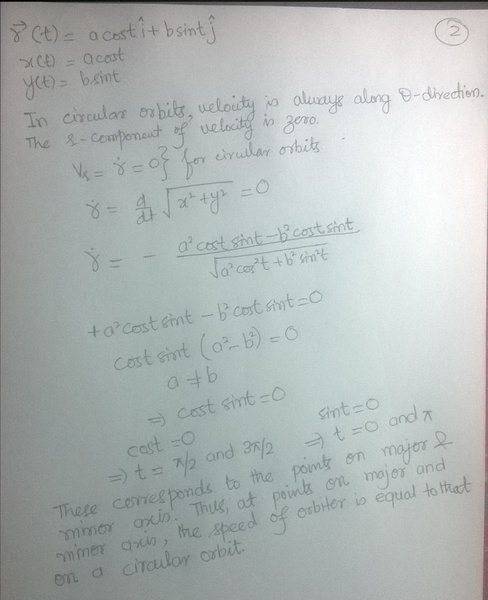 r⃗(t) = a cost î + b sint ĵ
②
x(t) = a cost
y(t) = b sint
In circular orbits, velocity is always along θ-direction.
The r-component of velocity is zero.
Vr = ṙ = 0} for circular orbits
ṙ = d/dt √(x²+y²) = 0
ṙ = - (a² cost sint - b² cost sint)/√(a² cos²t + b² sin²t)
+a² cost sint - b² cost sint = 0
cost sint (a² - b²) = 0
a ≠ b
⇒ cost sint = 0
cost = 0 sint = 0
⇒ t = π/2 and 3π/2 ⇒ t = 0 and π
These corresponds to the points on major &
minor axis. Thus, at points on major and
minor axis, the speed of orbiter is equal to that
on a circular orbit.